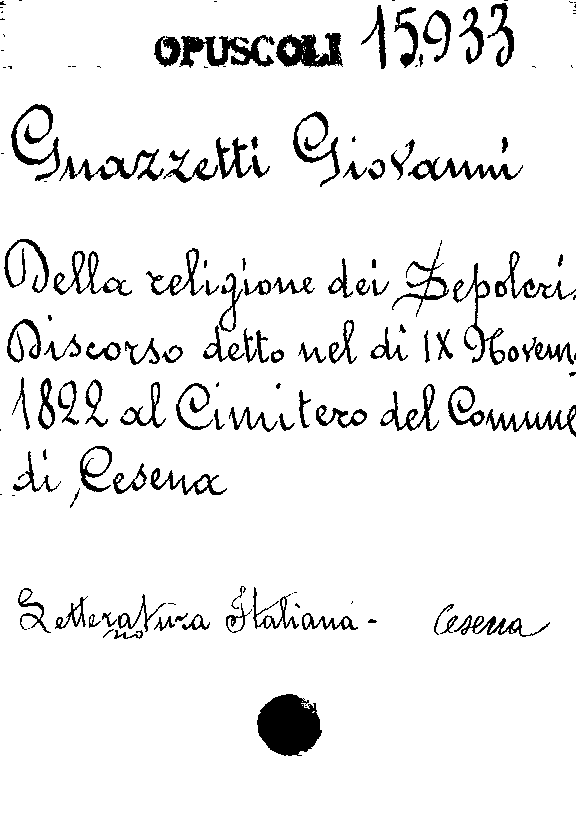 OPUSCOLI 15.933
Guazzetti Giovanni
Della religione dei Sepolcri.
Discorso detto nel di IX Novem
1822 al Cimitero del Comune
di Cesena
Letteratura Italiana - Cesena
no